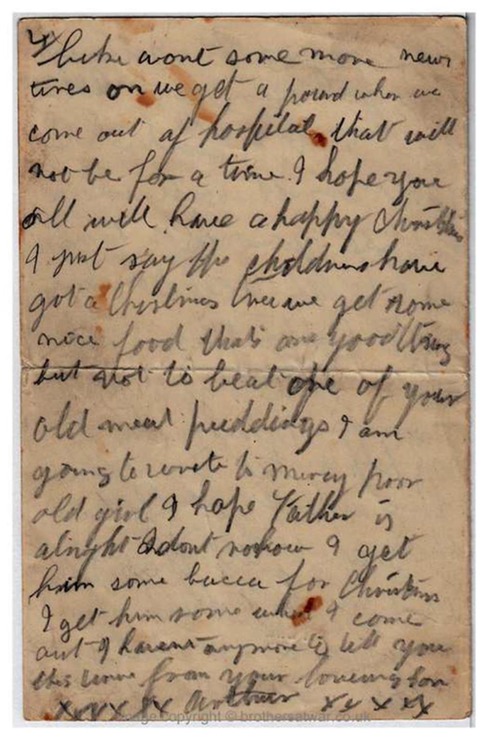 like wont some more new
ones on we get a pound when we
come out of hospital, that will
not be for a time. I hope you
all will have a happy Christmas
I say the childrens have
got a Christmas tree we get some
nice food thats one good thing
but not to beat one of your
old meat puddings I am
going to write to mercy poor
old girl I hope Father is
alright I dont how I get
him some bacca for Christmas
I get him some when I come
out I havent anymore to tell you
this time from your loveing Son
xxxxx Arthur xxxxx
copyright © brothersatwar.co.uk